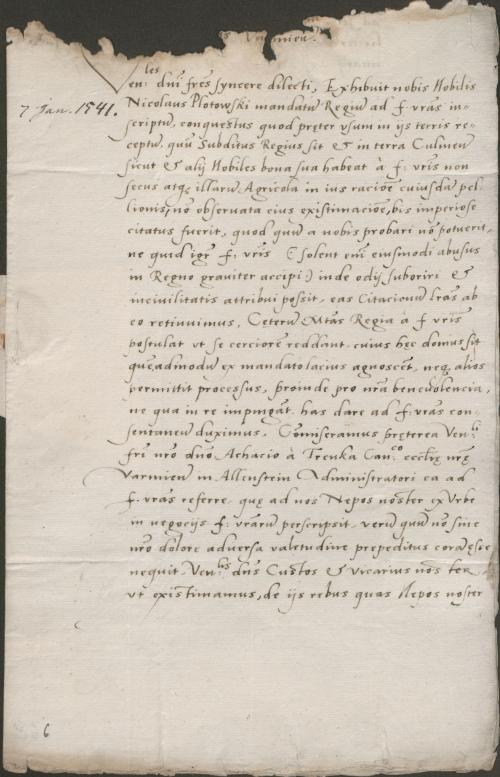 les
Ven: dni frẽs syncere dilecti, Exhibuit nobis Nobilis
7 Jan. 1541.
Nicolaus Plotowski mandatũ Regiũ ad f: vrãs in=
scriptũ, conquestus quod pręter usum in ijs terris re=
ceptũ, quũ Subditus Regius sit & in terra Culmeñ
sicut & alij Nobiles bona sua habeat à f: vris non
secus atq; illarũ Agricola in ius racioẽ cuiusdã pel=
lionis, nõ observata eius existimacioẽ, bis imperiose
citatus fuerit, quod quũ a nobis probari nõ potuerit,
ne quid igr̃ f: vris (: solent eñi eiusmodi abusus
in Regno graviter accipi :) inde odij suboriri &
incivilitatis attribui possit, eas Citacionũ lrãs ab
eo retinuimus, Ceterũ Mtãs Regia à f: vris
postulat ut se cerciorẽ reddant, cuius hęc domus sit
quẽadmodũ ex mandato lacius agnoscẽt, neq; alios
permittit processus, proinde pro nrã benevolencia,
ne qua in re impingãt, has dare ad f: vrãs con=
sentaneũ duximus. Cõmiseramus pręterea Ven:li
fri nrõ dnõ Achacio à Trenka Can:co ecclię nrę
Varmieñ in Allenstein Administratori ea ad
f: vrãs referre, quę ad nos Nepos noster ex Urbe
in negocijs f: vrarũ perscripsit, verũ quũ nõ sine
nrõ dolore adversa valetudine prepeditus corã esse
nequit, Ven:lis dns Custos & vicarius noster
ut existimamus, de ijs rebus quas Nepos noster
6